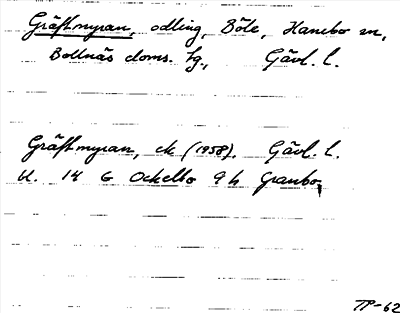 Gräftmyran, odling, Böle, Hanebo sn,
Bollnäs doms. tg., Gävl. l.
Gräftmyran, ek (1958). Gävl. l.
U. 14 G Ockelbo 9 h Granbo,
TP-62